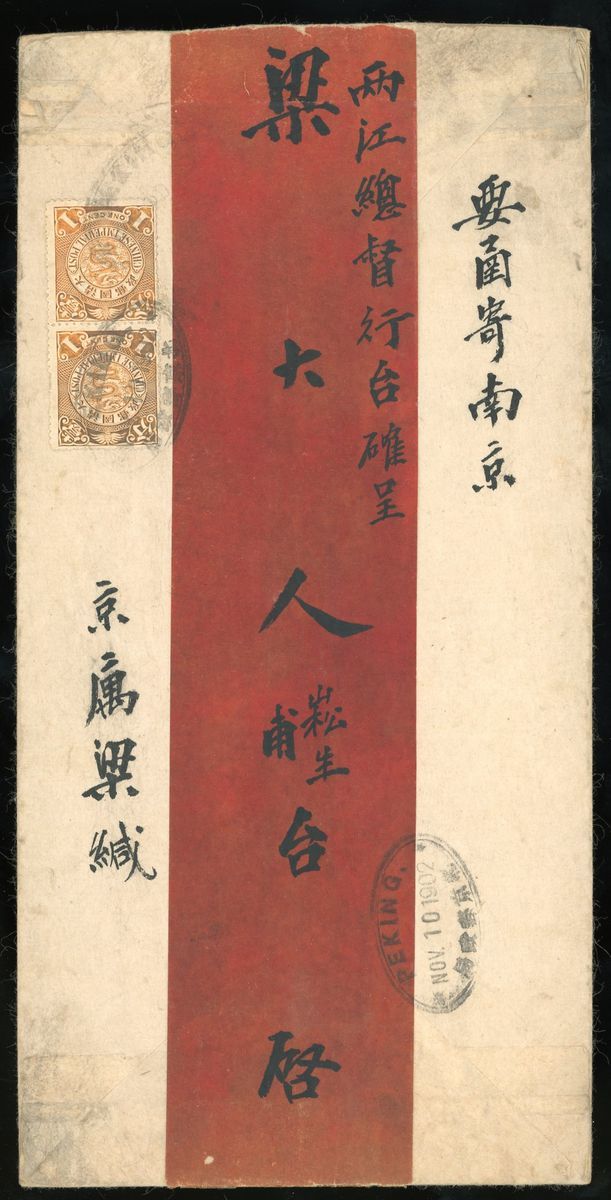 要函寄南京
兩江總督行台確呈
梁大人
崧生
甫
台啓
京寓梁緘
1
ONE CENT
CHINESE IMPERIAL POST
大清國郵政
1
CHINESE IMPERIAL POST
大清國郵政
PEKING.
NOV. 10 1902